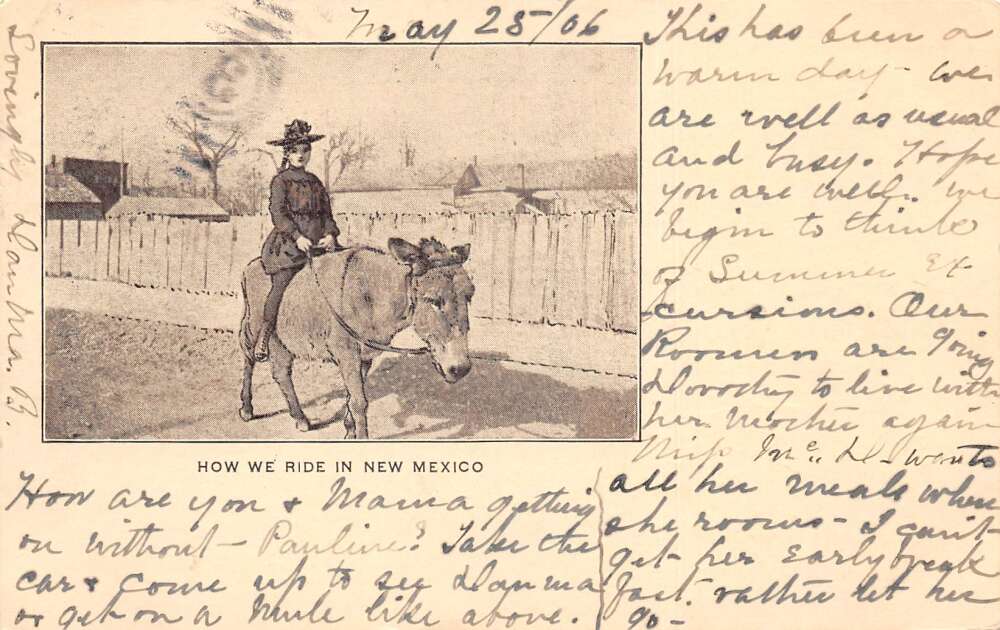 May 25/06
This has been a
warm day - we
are well as usual
and busy. Hope
you are well. we
begin to think
of Summer Ex-
cursions. Our
Roomers are going
Dorothy to live with
her Mother again
Miss Mc. D - wants
all her meals where
she rooms - I can't
get her Early break
fast. rather let her
go -
HOW WE RIDE IN NEW MEXICO
How are you & Mama getting
on without - Pauline? Take the
car & come up to see Danma
or get on a Mule like above.
Lovingly Danma. B.